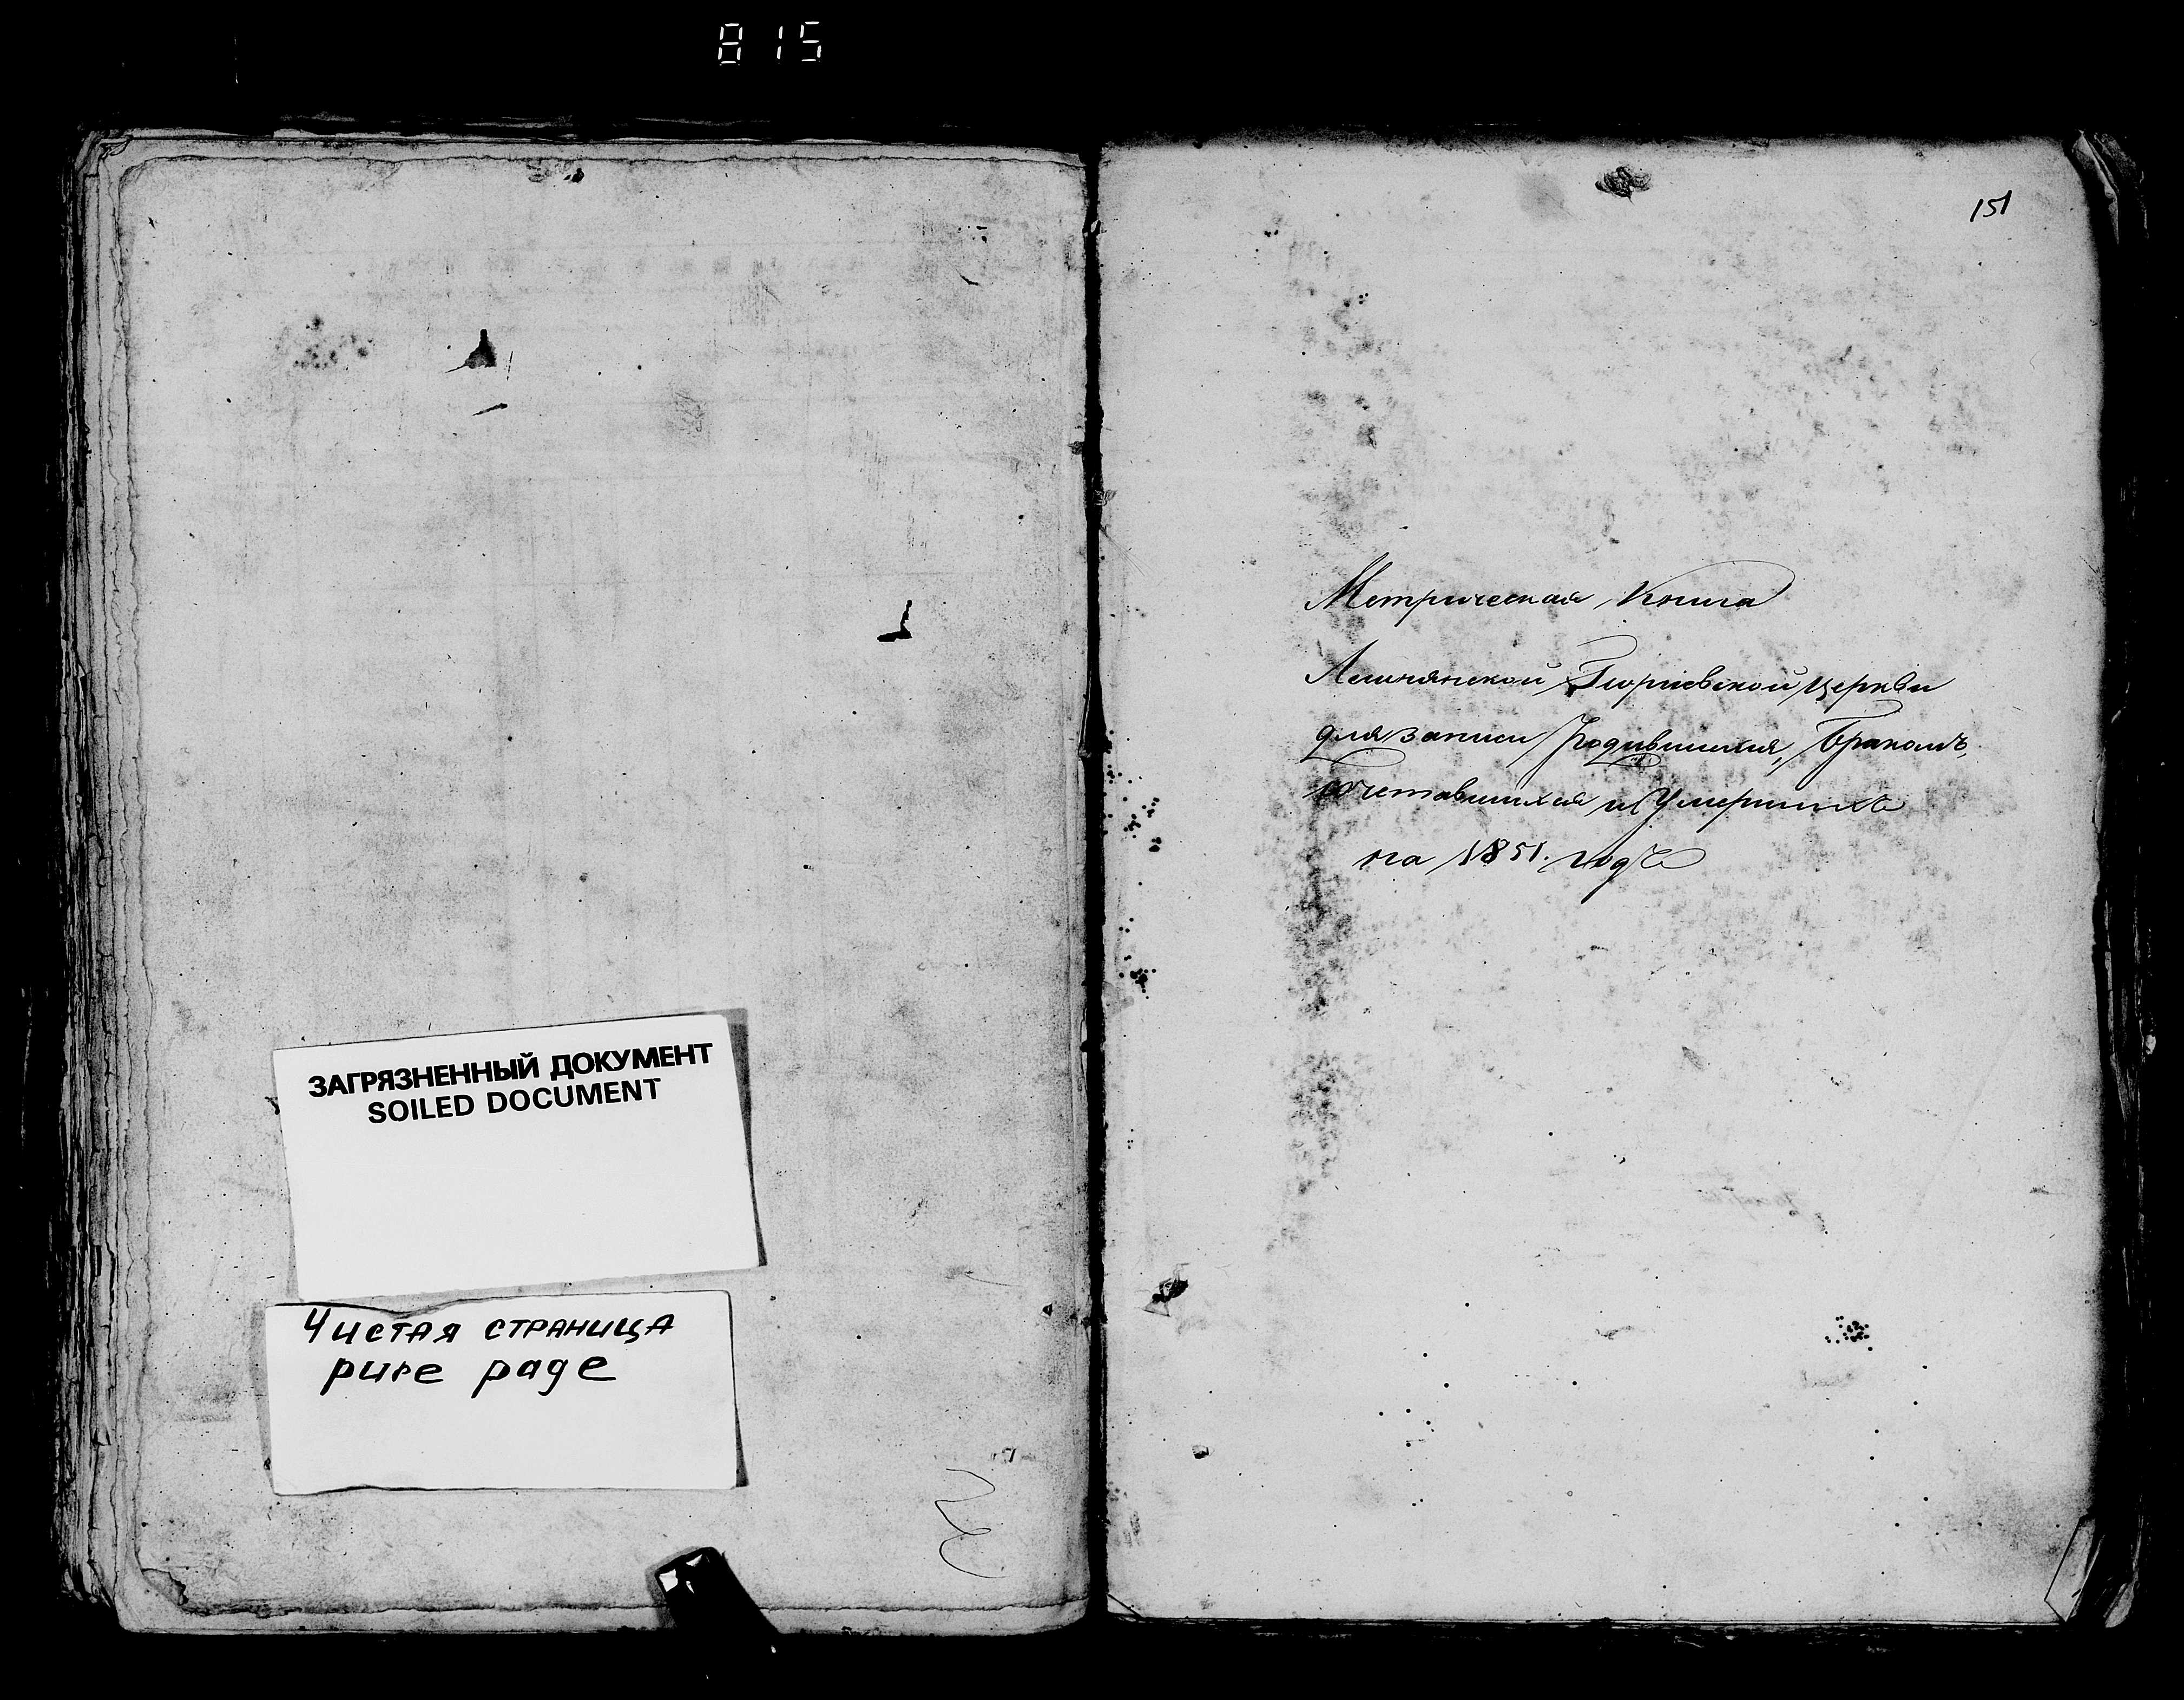 815
ЗАГРЯЗНЕННЫЙ ДОКУМЕНТ
SOILED DOCUMENT
Чистая страница
pure page
151
Метрическая Книга
Лешнянской Георгіевской церкви
для записи Родившихся, Бракомъ
сочетавшихся и Умершихъ
на 1851. годъ